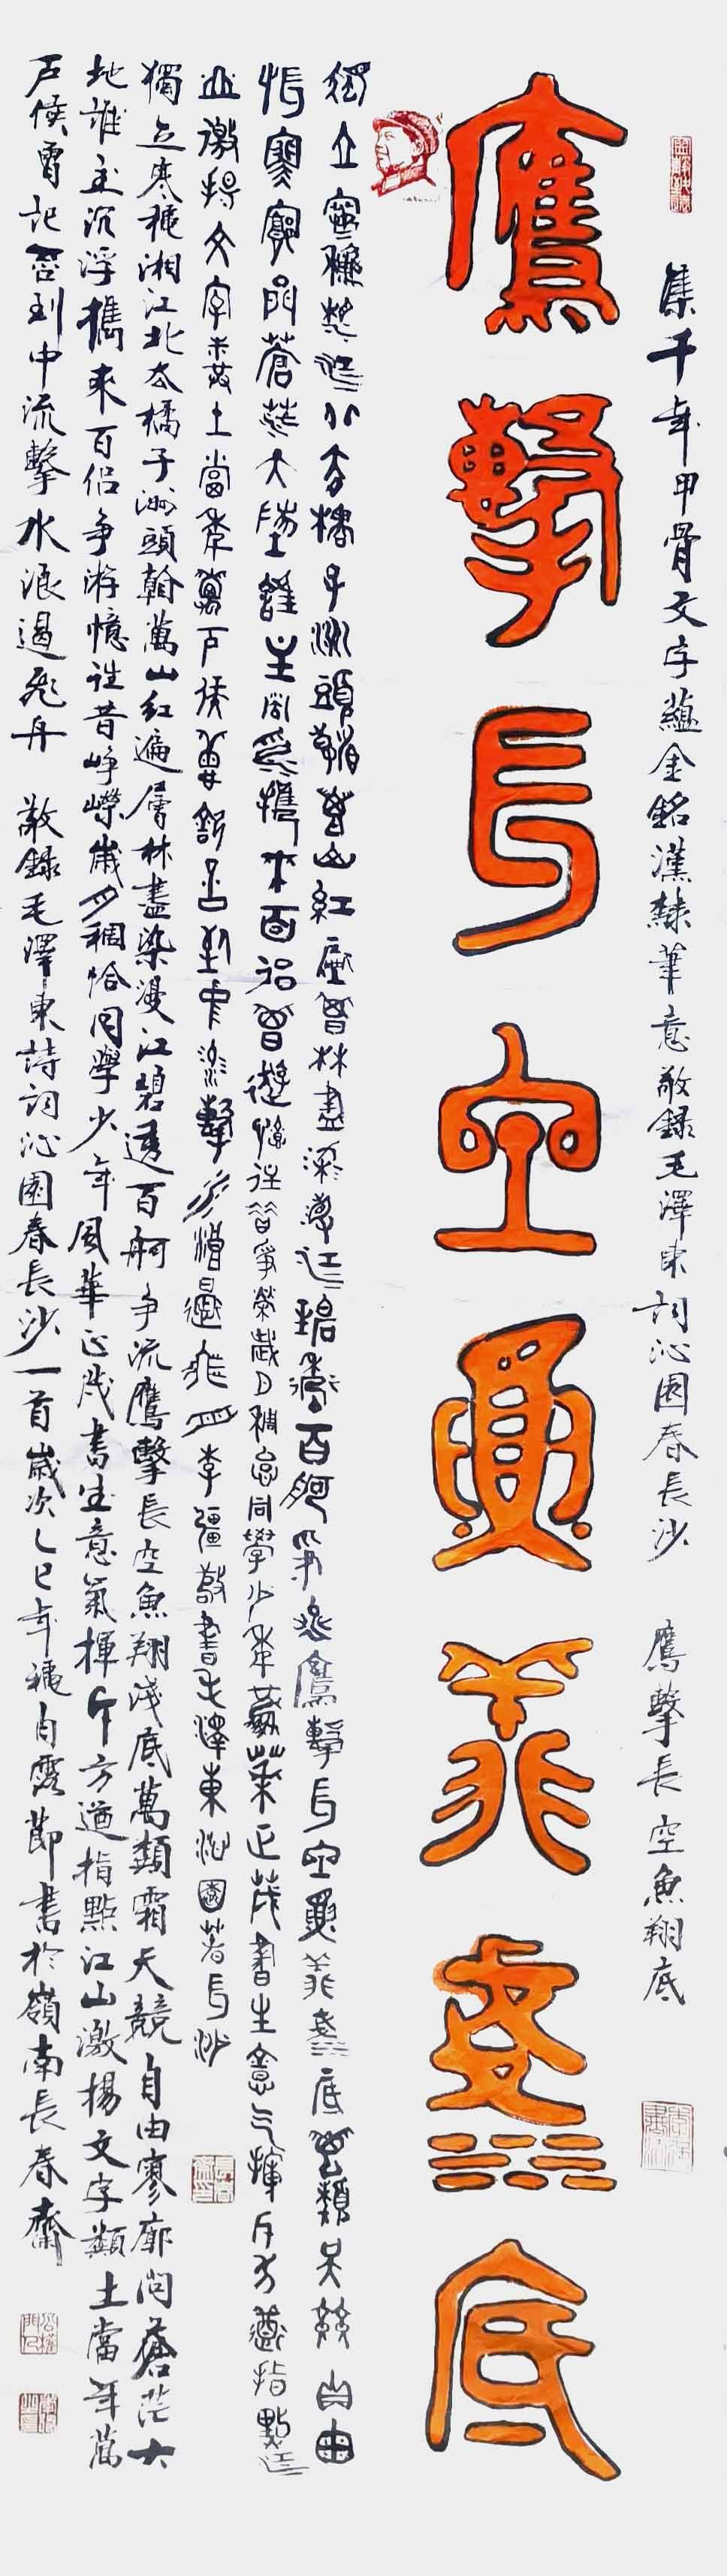 集千年甲骨文字蘊金銘漢隸筆意敬錄毛澤東詞沁園春長沙 鷹擊長空魚翔底
鷹擊長空魚翔淺底
獨立寒穐江北去橘子洲頭萬山紅層林盡染江碧透百舸爭流鷹擊長空魚翔淺底萬類天競自由
悵寥廓問蒼茫大地誰主沉浮攜來百侶曾遊憶往昔爭榮歲月稠恰同學少年風華正茂書生意气揮斥方遒指點江
山激揚文字糞土當年萬戶侯曾記否到中流擊水浪遏飛舟 李疆敬書毛澤東沁園春長沙
獨立寒穐湘江北去橘子洲頭翰萬山紅遍層林盡染漫江碧透百舸爭流鷹擊長空魚翔淺底萬類霜天競自由寥廓問蒼茫大
地誰主沉浮攜來百侶爭游憶往昔崢嶸歲月稠恰同學少年風華正茂書生意氣揮斥方遒指點江山激揚文字類土當年萬
戶侯曾記否到中流擊水浪遏飛舟 敬錄毛澤東詩詞沁園春長沙一首歲次乙巳年穐白露節書於嶺南長春齋